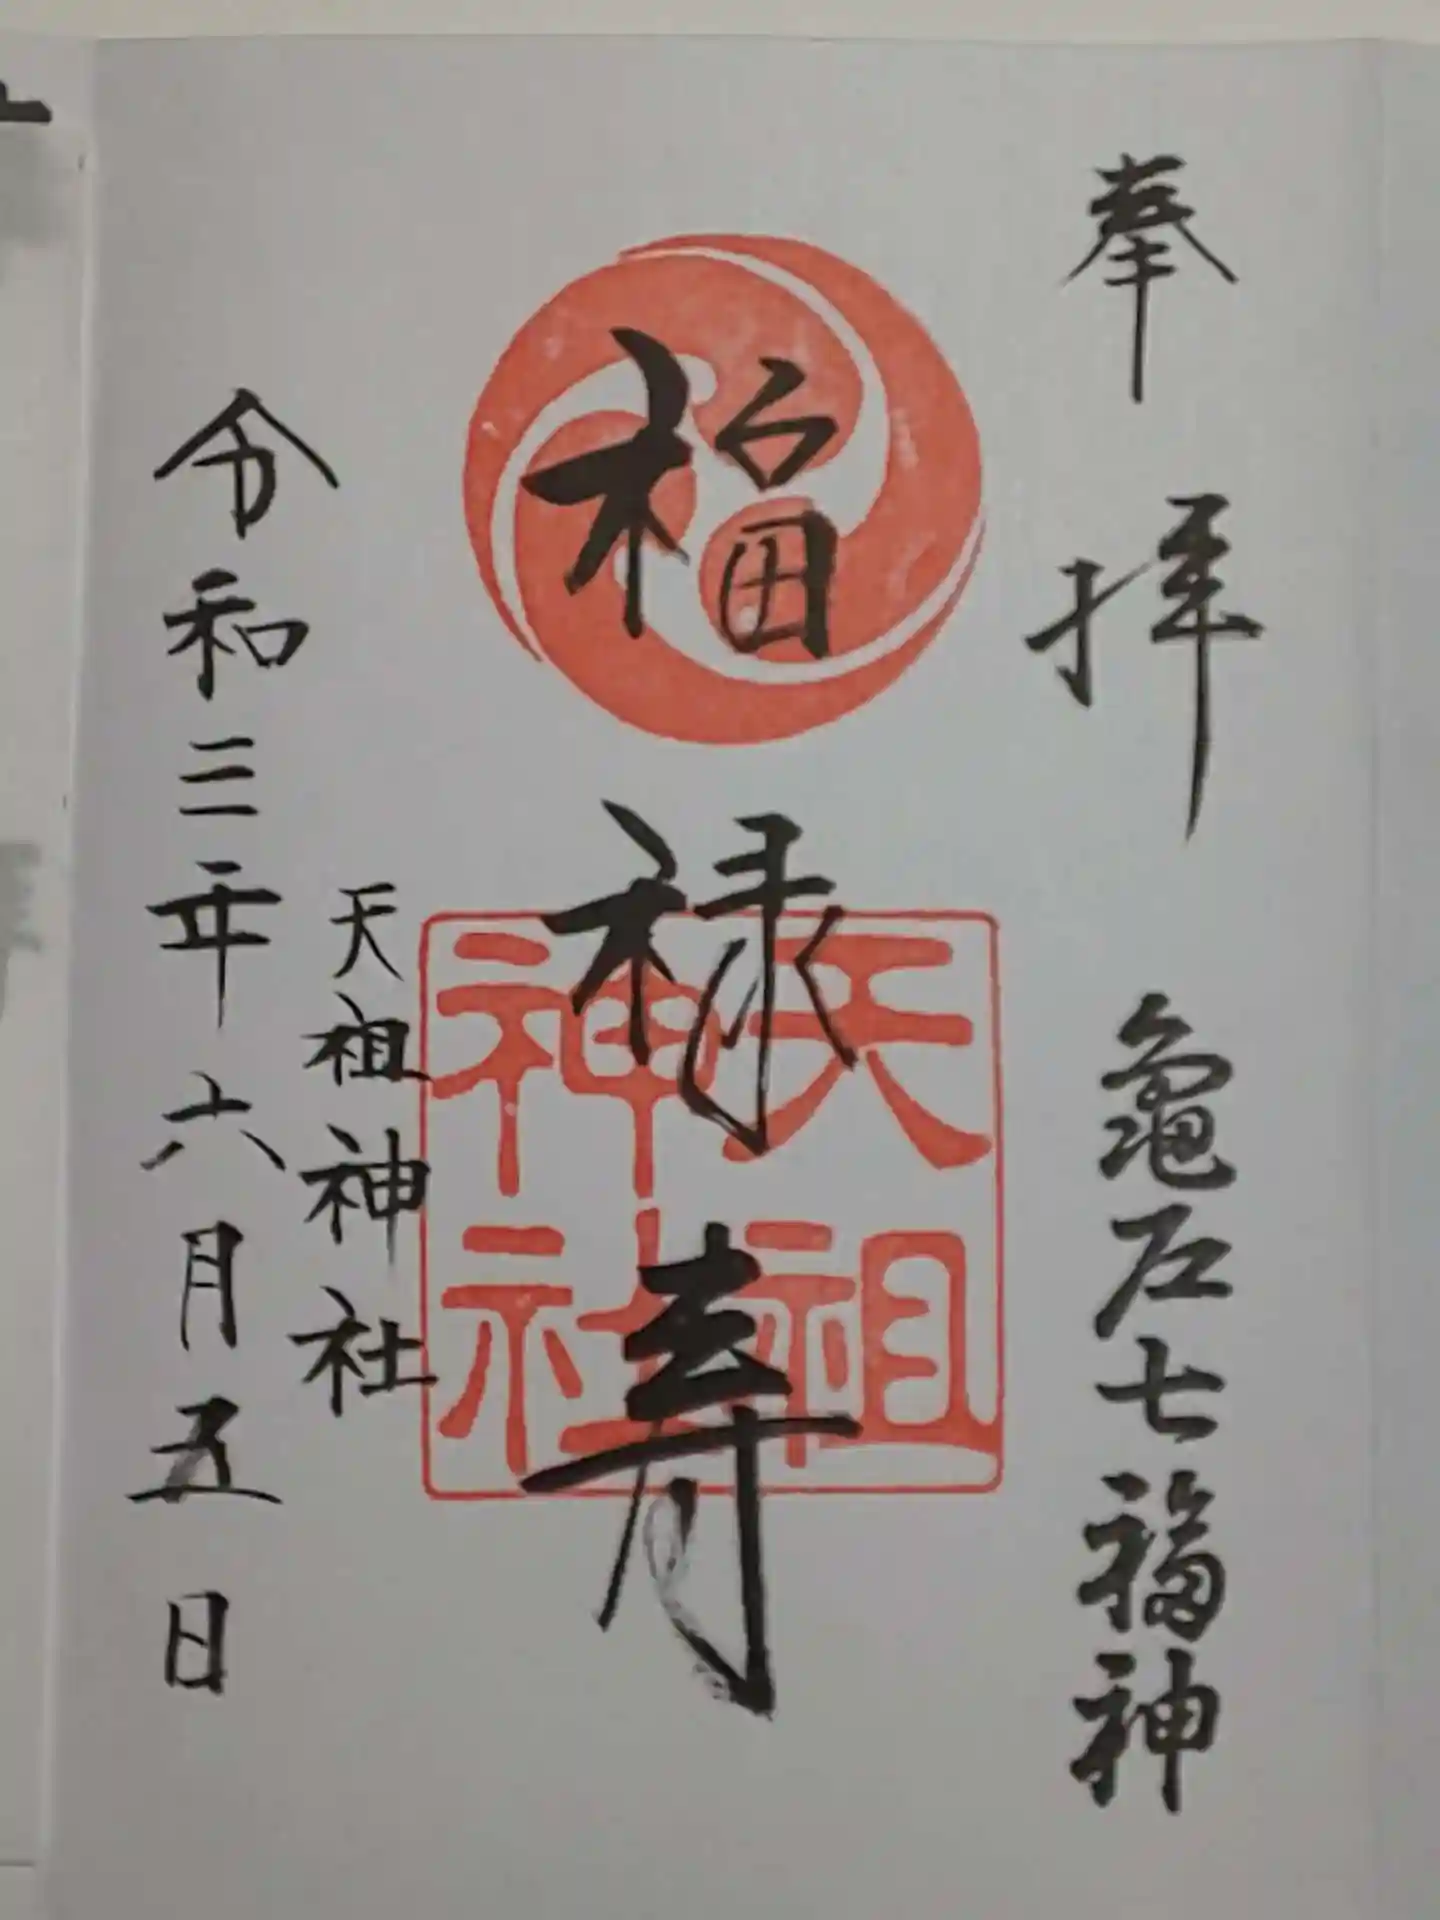 奉拝
亀戸七福神
福禄寿
天祖神社
天祖神社
令和三年六月五日